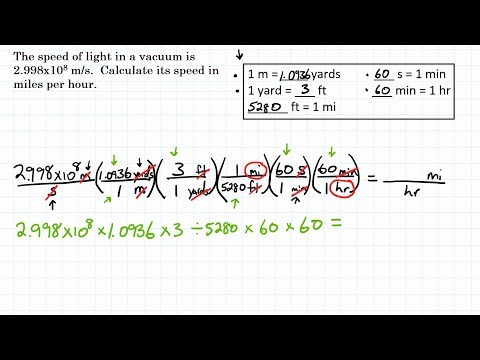 The speed of light in a vacuum is
2.998x10⁸ m/s. Calculate its speed in
miles per hour.
• 1 m = 1.0936 yards
• 1 yard = 3 ft
5280 ft = 1 mi
• 60 s = 1 min
• 60 min = 1 hr
2.998x10⁸ m / s (1.0936 yards / 1 m)(3 ft / 1 yards)(1 mi / 5280 ft)(60 s / 1 min)(60 min / 1 hr) = ____ mi / hr
2.998x10⁸ x 1.0936 x 3 ÷ 5280 x 60 x 60 =